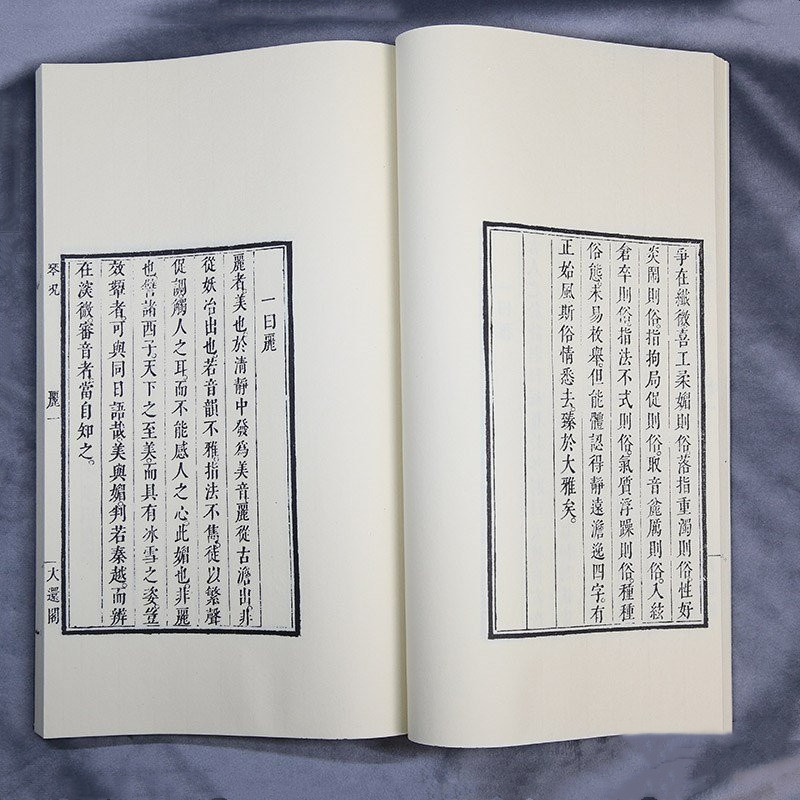 爭在纖微喜工柔媚則俗。落指重濁則俗。性好
炎鬧則俗。指拘局促則俗。取音麄厲則俗。入絃
倉卒則俗。指法不式則俗。氣質浮躁則俗。種種
俗態未易枚舉。但能體認得靜遠澹逸四字。有
正始風。斯俗情悉去。臻於大雅矣。
一曰麗
麗者美也。於清靜中發爲美音。麗從古澹出。非
從妖冶出也。若音韻不雅。指法不雋。徒以繁聲
促調觸人之耳。而不能感人之心。此媚也。非麗
也。譬諸西子。天下之至美。而具有冰雪之姿。豈
效顰者可與同日語哉。美與媚判若秦越。而辨
在深微。審音者當自知之。
琴況 麗一 大還閣